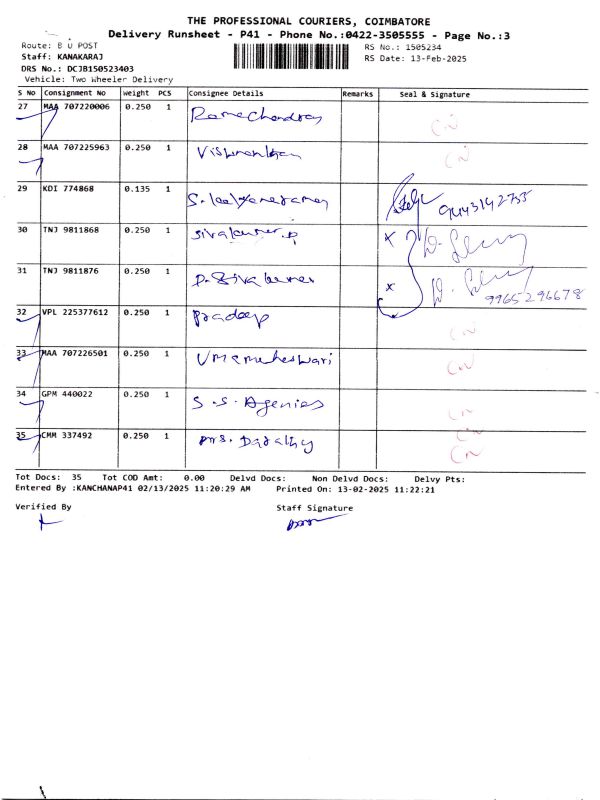 THE PROFESSIONAL COURIERS, COIMBATORE
Delivery Runsheet - P41 - Phone No.:0422-3505555 - Page No.:3
Route: B U POST
RS No.: 1505234
Staff: KANAKARAJ
RS Date: 13-Feb-2025
DRS No.: DCJB150523403
Vehicle: Two Wheeler Delivery
S No Consignment No Weight PCS Consignee Details Remarks Seal & Signature
27 MAA 707220006 0.250 1 Ramachandran CN
28 MAA 707225963 0.250 1 CN
29 KDI 774868 0.135 1 9443142755
30 TNJ 9811868 0.250 1 Sivakumar.p x
31 TNJ 9811876 0.250 1 P. Sivakumar x 9965296678
32 VPL 225377612 0.250 1 Pradeep CN
33 MAA 707226501 0.250 1 Umamaheswari CN
34 GPM 440022 0.250 1 S.S. Agenies CN
CN
35 CMM 337492 0.250 1 CN
Tot Docs: 35 Tot COD Amt: 0.00 Delvd Docs: Non Delvd Docs: Delvy Pts:
Entered By :KANCHANAP41 02/13/2025 11:20:29 AM Printed On: 13-02-2025 11:22:21
Verified By Staff Signature